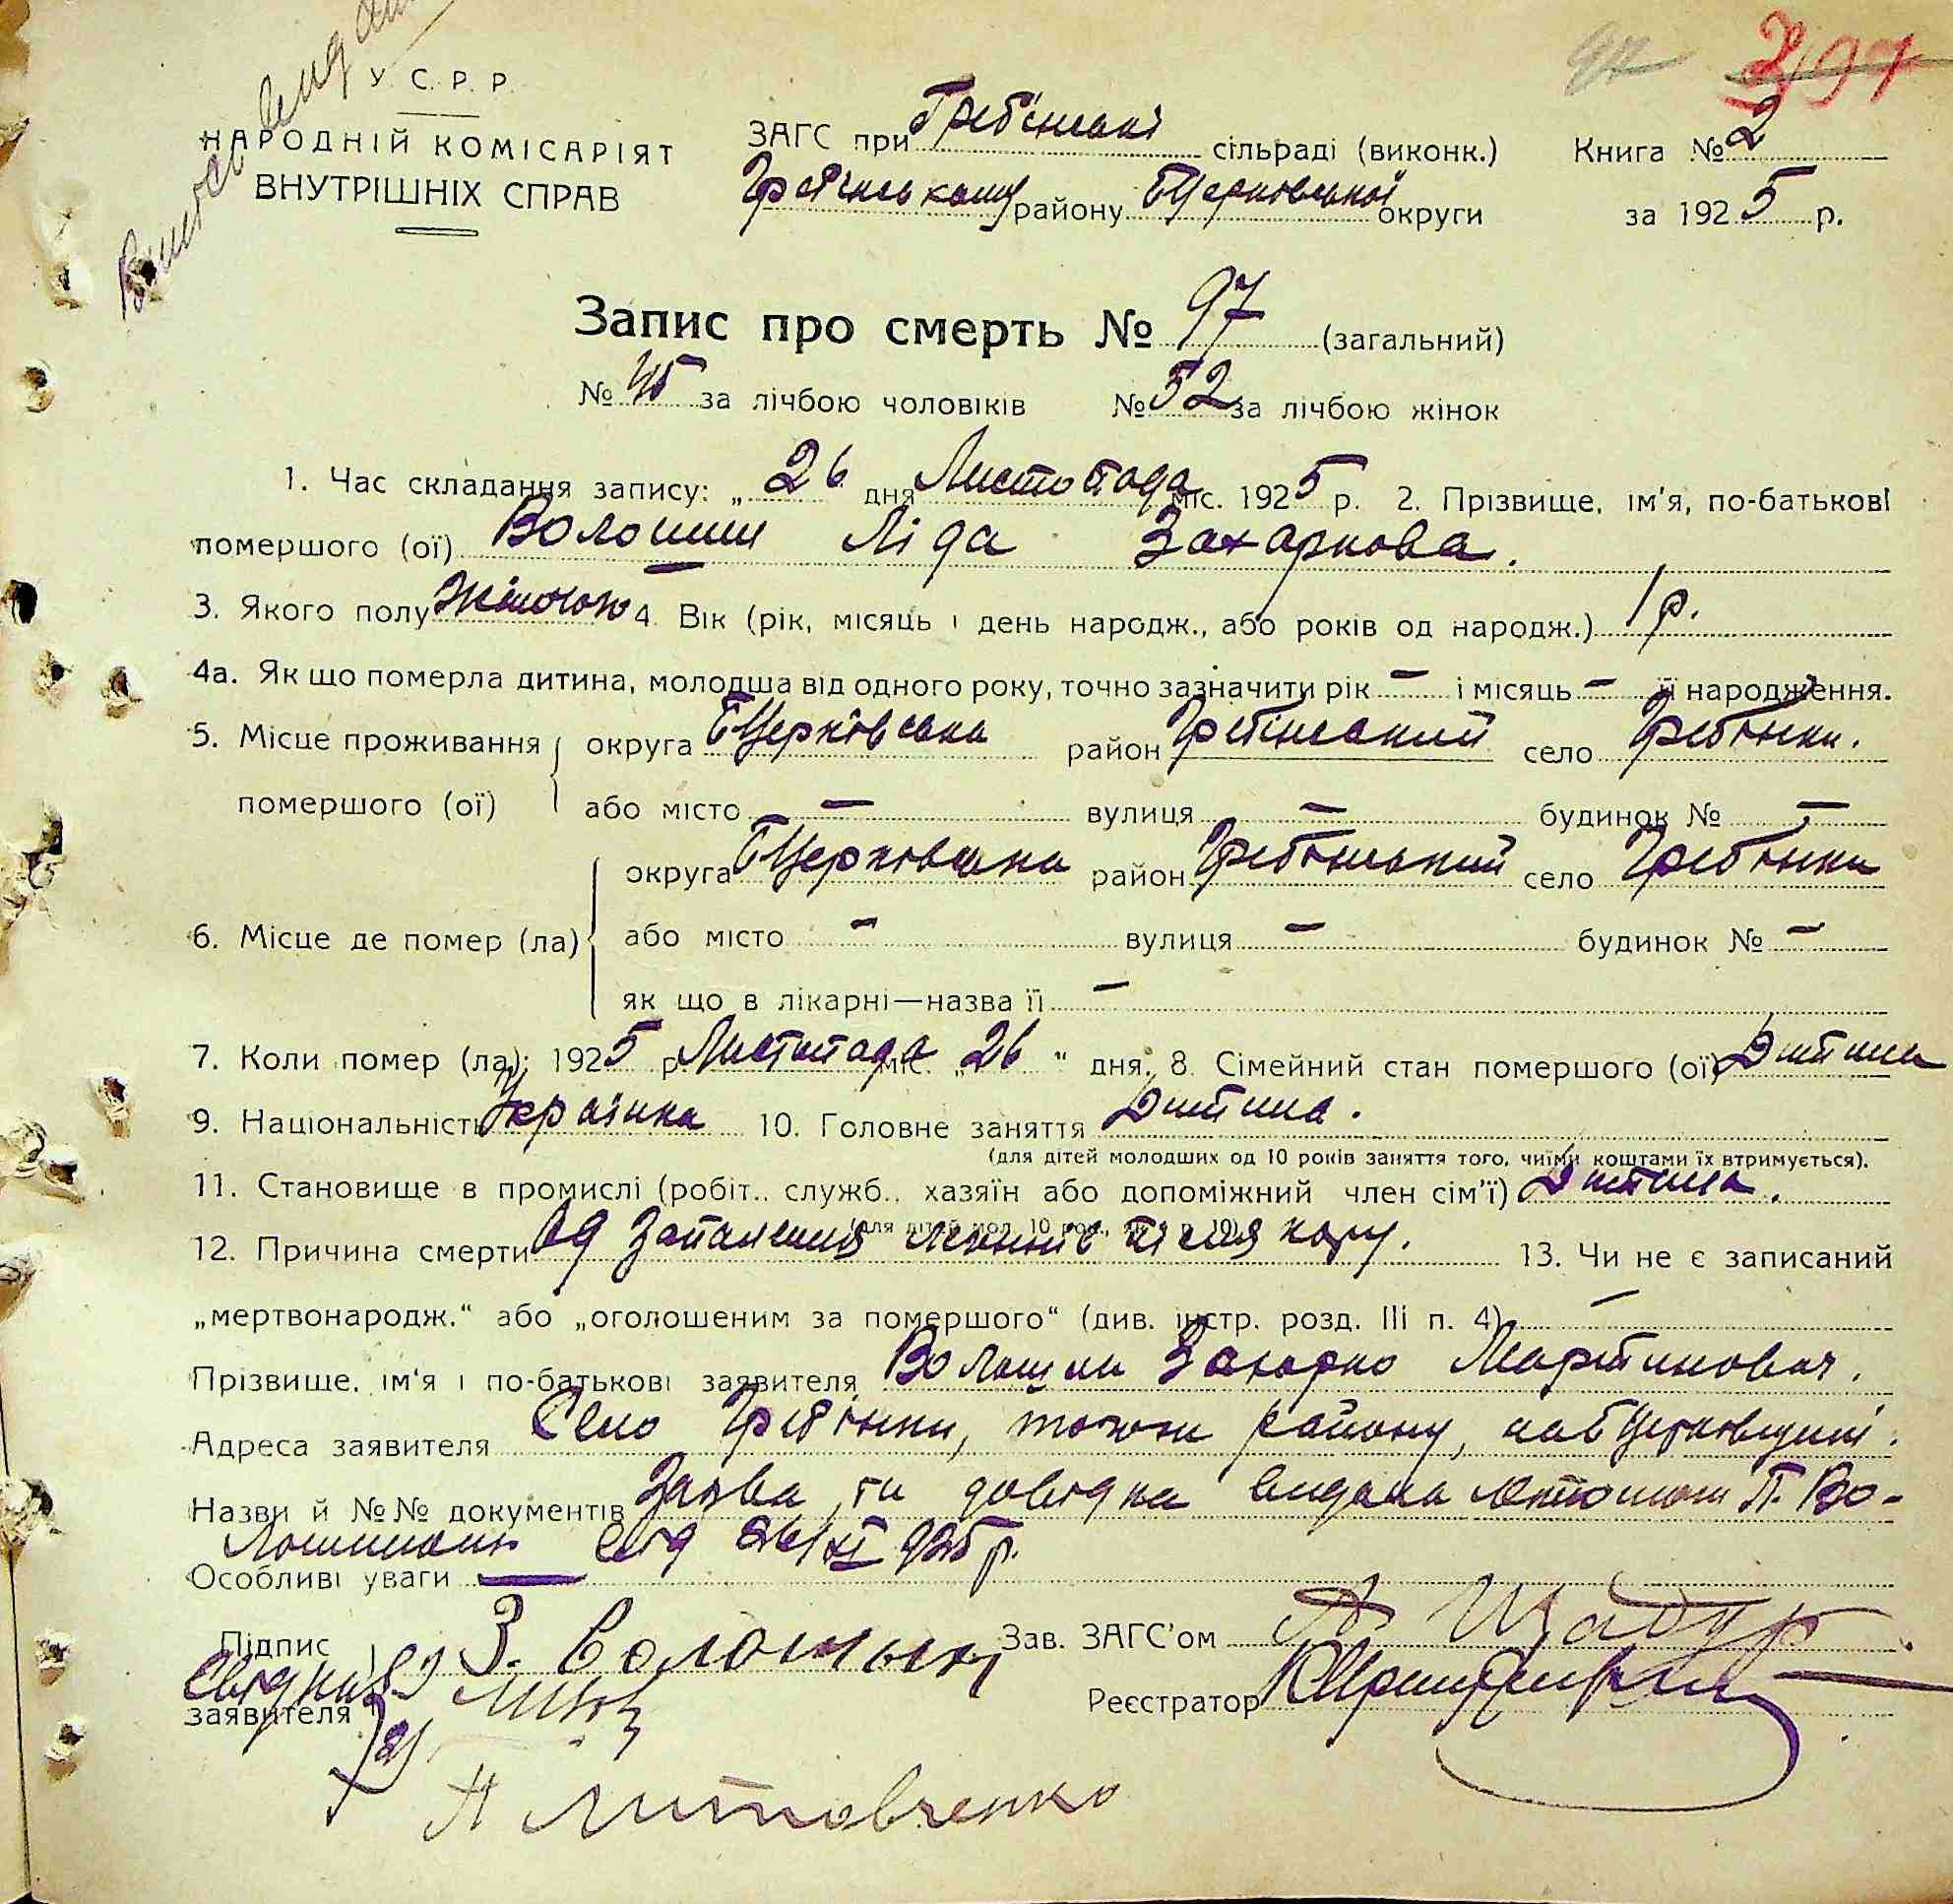 У. С. Р. Р.
НАРОДНІЙ КОМІСАРІЯТ
ВНУТРІШНІХ СПРАВ
ЗАГС при Гребінські сільраді (виконк.)
Гребінському району БЦерківської округи
Книга № 2
за 1925 р.
97
Запис про смерть № 97 (загальний)
№ 45 за лічбою чоловіків № 52 за лічбою жінок
1. Час складання запису: „ 26 дня Листопада міс. 1925 р. 2. Прізвище, ім'я, по-батькові
помершого (ої) Волошин Ліда Захаркова.
3. Якого полу Жіночою 4. Вік (рік, місяць і день народж., або років од народж.) 1 р.
4а. Як що померла дитина, молодша від одного року, точно зазначити рік – і місяць – її народження.
5. Місце проживання округа БЦерківська район Гребінський село Гребінки.
помершого (ої) або місто – вулиця – будинок № –
округа БЦерківська район Гребінський село Гребінки
6. Місце де помер (ла) або місто – вулиця – будинок № –
як що в лікарні—назва її –
7. Коли помер (ла): 1925 р. Листопада міс. „ 26 " дня. 8. Сімейний стан помершого (ої) Дитина
9. Національність Українка 10. Головне заняття Дитина.
(для дітей молодших од 10 років заняття того, чиїми коштами їх втримується).
11. Становище в промислі (робіт., служб., хазяїн або допоміжний член сім'ї) Дитина.
12. Причина смерти Од Запалення легенів після кору. 13. Чи не є записаний
„мертвонародж." або „оголошеним за помершого" (див. інстр. розд. III п. 4) –
Прізвище, ім'я і по-батькові заявителя Волошин Захарко Мартинович.
Адреса заявителя Село Гребінки, того ж району, на БЦерківщині.
Назви й №№ документів Заява та довідка видана П. Во-
лошином від 26/XI 925 р.
Особливі уваги —
Підпис З. Волошин Зав. ЗАГС'ом
Свідки 1)
заявителя Реєстратор
2) П Литовченко